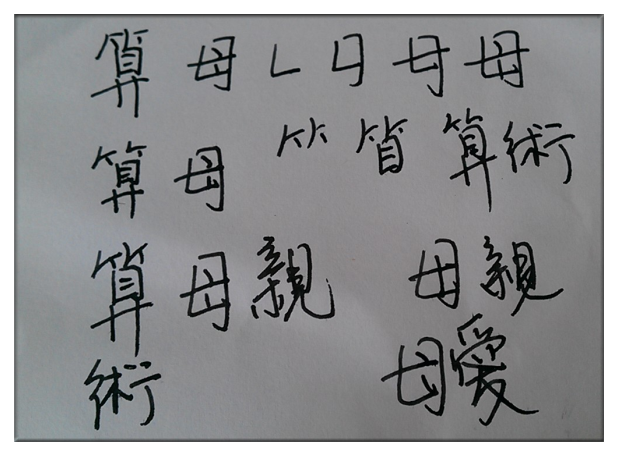 算 母 𠃊 母 母 母
算 母 𥫗 筲 算術
算 母親 母親
術 母愛